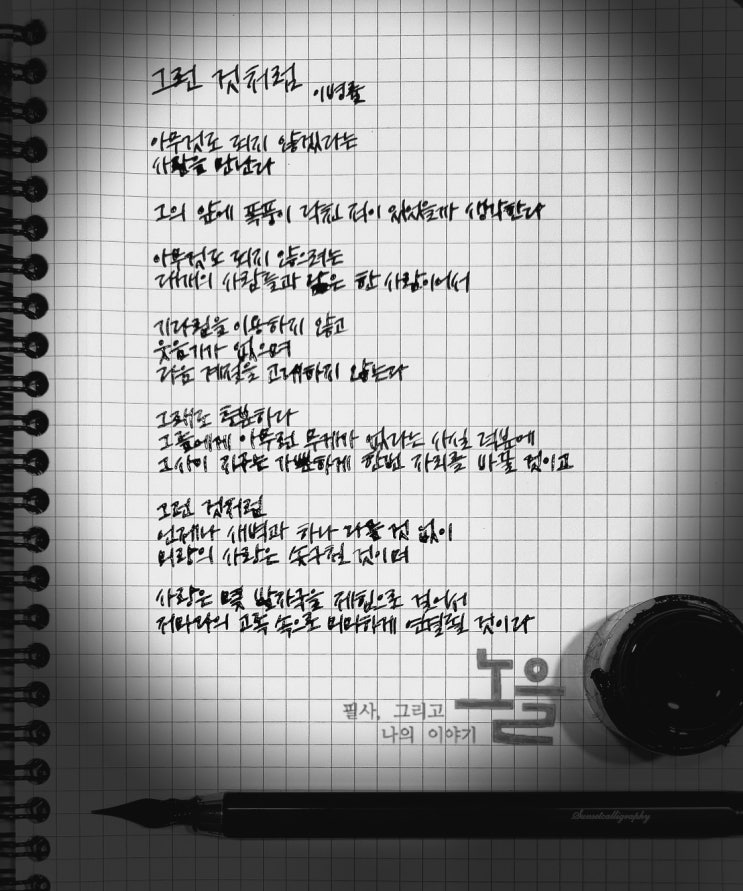 그런 것처럼
이병률
아무것도 되지 않겠다는
사람을 만난다
그의 앞에 폭풍이 닥친 적이 있었을까 생각한다
아무것도 되지 않으려는
대개의 사람들과 닮은 한 사람이어서
기다림을 이용하지 않고
웃음기가 없으며
다음 계절을 고대하지 않는다
그래도 턱분하다
그들에게 아무런 무게가 없다는 사실 덕분에
그사이 지구는 가뿐하게 한번 자리를 바꿀 것이고
그런 것처럼
언제나 새벽과 하나 다를 것 없이
미량의 사랑은 솟구칠 것이며
사랑은 몇 발자국을 제힘으로 걸어서
저마다의 고독 속으로 미미하게 연결될 것이다
필사, 그리고
나의 이야기
노을
Sunsetcalligraphy